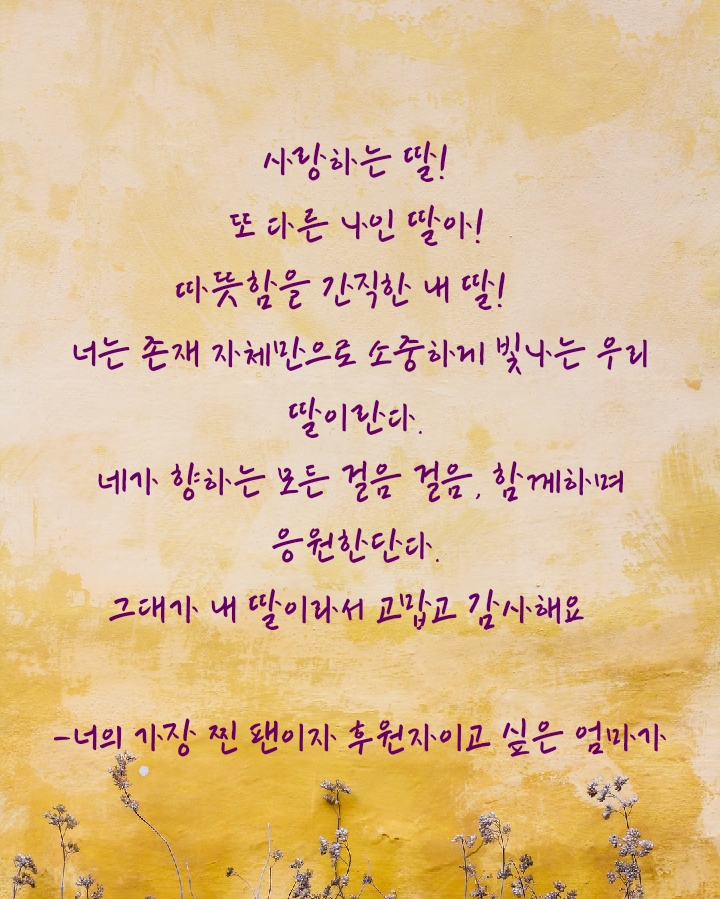 사랑하는 딸!
또 다른 나인 딸아!
따뜻함을 간직한 내 딸!
너는 존재 자체만으로 소중하게 빛나는 우리
딸이란다.
네가 향하는 모든 걸음 걸음, 함께하며
응원한단다.
그대가 내 딸이라서 고맙고 감사해요
-너의 가장 찐 팬이자 후원자이고 싶은 엄마가